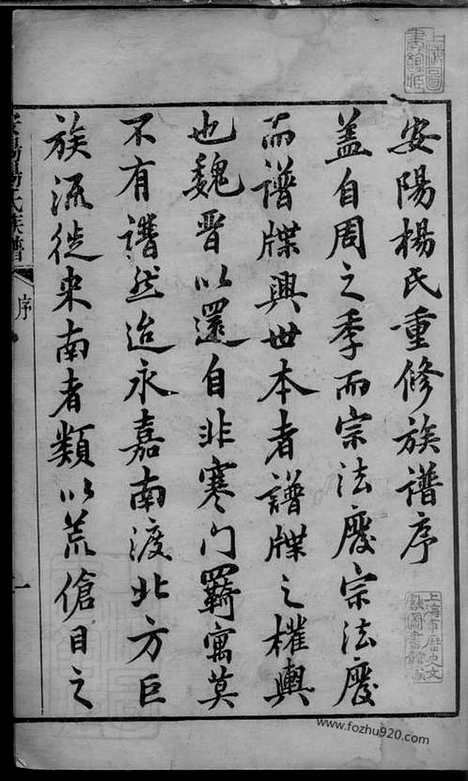 安陽楊氏重修族譜序
蓋自周之季而宗法廢宗法廢
而譜牒興世本者譜牒之權輿
也魏晉以還自非寒门羈寓莫
不有譜然迨永嘉南渡北方巨
族流徙来南者類以荒傖目之
安陽楊氏族譜
序
一
www.fozhu920.com